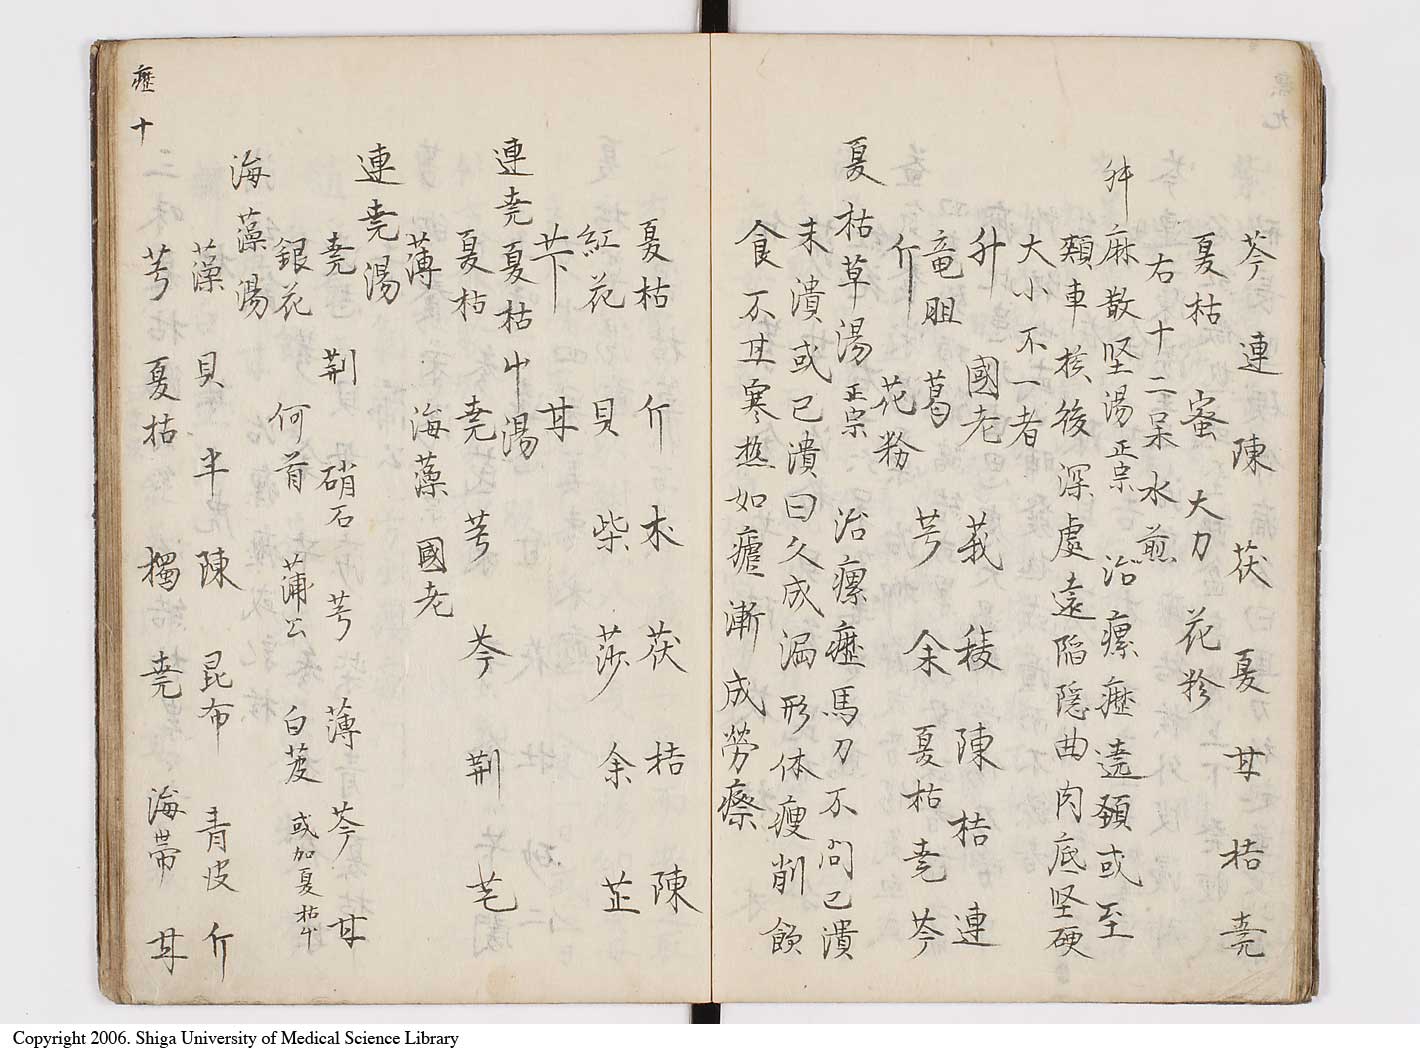 芩 連 陳 茯 夏 甘 桔 尭
夏枯 蜜 大力 花粉
右十二味水煎
升麻散堅湯正宗 治瘰癧遶頚或至
頬車核後深處遠陷隠曲肉底堅硬
大小不一者
升 國老 莪 稜 陳 桔 連
竜胆 葛 芍 余 夏枯 尭 芩
介 花粉
夏枯草湯正宗 治瘰癧馬刀不問已潰
未潰或已潰日久成漏形体痩削飲
食不甘寒熱如瘧漸成勞瘵
夏枯 介 朮 茯 桔 陳
紅花 貝 柴 莎 余 芷
芐 甘
連尭夏枯艸湯
夏枯 尭 芍 芩 荆 芼
薄 海藻 國老
連尭湯
尭 荆 硝石 芍 薄 芩 甘
銀花 何首 蒲公 白芨 或加夏枯艸
海藻湯
藻 貝 半 陳 昆布 青皮 介
芎 夏枯 獨 尭 海帯 甘
癧 十
Copyright 2006. Shiga University of Medical Science Library